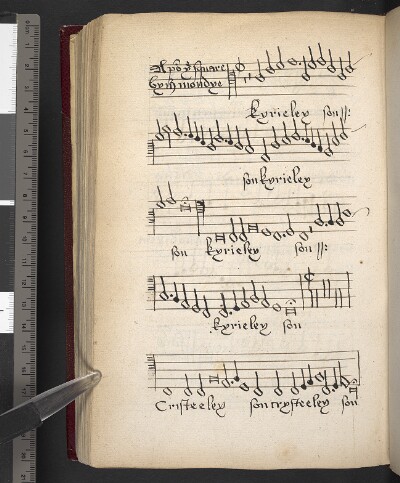 Apō yͤ square
kyrieley son :||:
son kyrieley
son kyrieley son :||:
kyrieley son
Cristeeley son crysteeley son